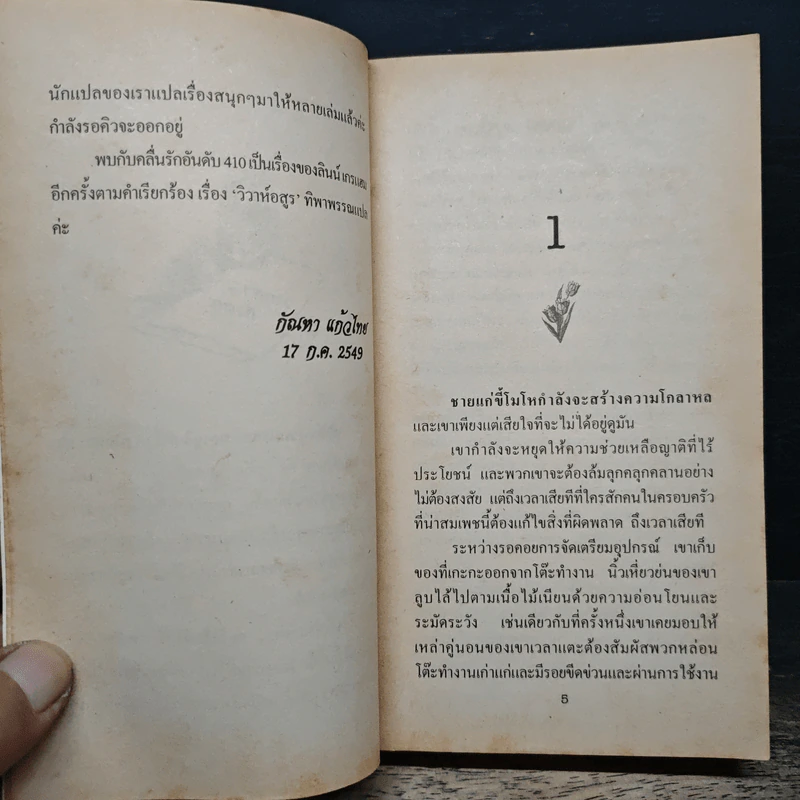 นักแปลของเราแปลเรื่องสนุกๆมาให้หลายเล่มแล้วค่ะ
กำลังรอคิวจะออกอยู่
พบกับคลื่นรักอันดับ 410 เป็นเรื่องของลินน์ เกรแฮม
อีกครั้งตามคำเรียกร้อง เรื่อง ‘วิวาห์อสูร’ ทิพาพรรณแปล
ค่ะ
กัณหา แก้วไทย
17 ก.ค. 2549
1
ชายแก่ขี้โมโหกำลังจะสร้างความโกลาหล
และเขาเพียงแต่เสียใจที่จะไม่ได้อยู่ดูมัน
เขากำลังจะหยุดให้ความช่วยเหลือญาติที่ไร้
ประโยชน์ และพวกเขาจะต้องล้มลุกคลุกคลานอย่าง
ไม่ต้องสงสัย แต่ถึงเวลาเสียทีที่ใครสักคนในครอบครัว
ที่น่าสมเพชนี้ต้องแก้ไขสิ่งที่ผิดพลาด ถึงเวลาเสียที
ระหว่างรอคอยการจัดเตรียมอุปกรณ์ เขาเก็บ
ของที่เกะกะออกจากโต๊ะทำงาน นิ้วเหี่ยวย่นของเขา
ลูบไล้ไปตามเนื้อไม้เนียนด้วยความอ่อนโยนและ
ระมัดระวัง เช่นเดียวกับที่ครั้งหนึ่งเขาเคยมอบให้
เหล่าคู่นอนของเขาเวลาแตะต้องสัมผัสพวกหล่อน
โต๊ะทำงานเก่าแก่และมีรอยขีดข่วนและผ่านการใช้งาน
5